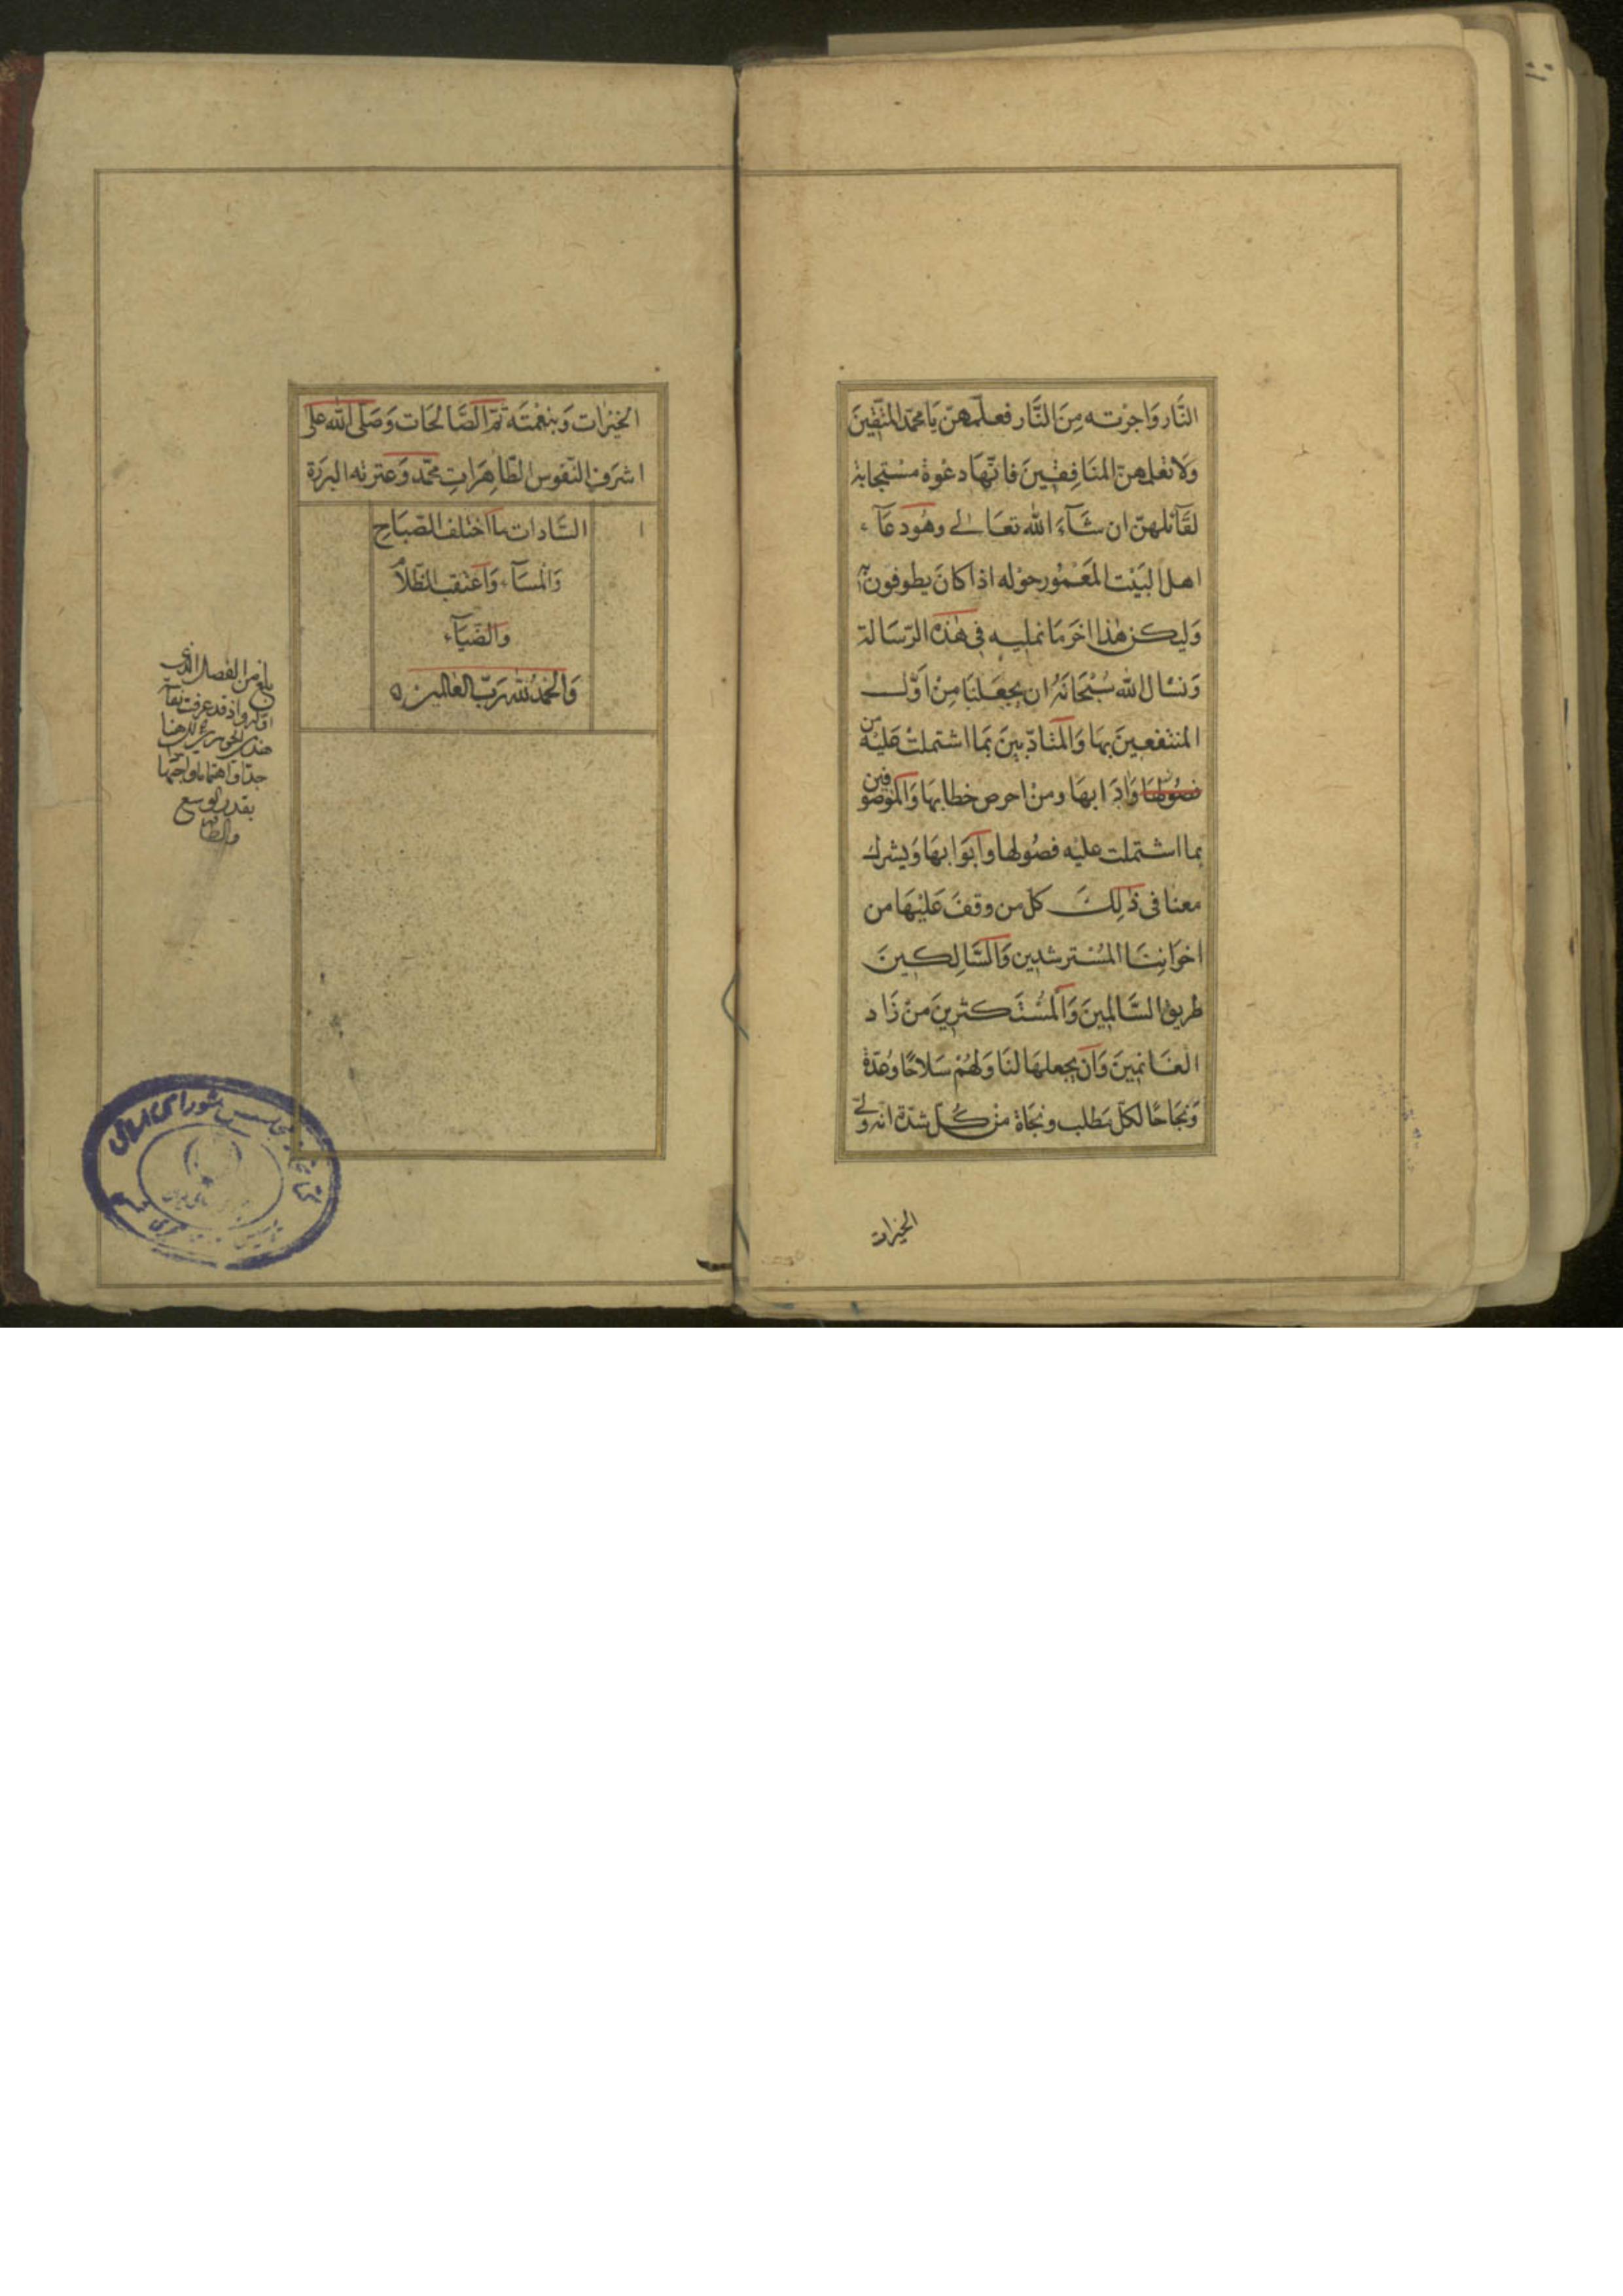 النَّار وَاجرته مِنَ النَّار فعلّمهنّ يَا محمّد المتّقينَ
وَلَا تعلمهنّ المنَافِقينَ فانّهَا دعْوة مسْتجابة
لقَآئلهنّ ان شَآءَ الله تعَالى وهُو دعَآء
اهل البَيْت المَعْمُور حوْله اذا كانَ يطوفون به
وَليكن هٰذا اخر مَا نمليه فى هٰذه الرّسَالة
وَنسْال الله سُبْحَانَهُ ان يجعَلنَا مِنْ اوّل
المنتفعينَ بهَا وَالمتَادّبينَ بمَا اشتملتْ عَليْه من
فصُولهَا وَادَابهَا ومنْ احرص خطابهَا وَالموْصوفين
بما اشتملت عليْه فصُولها وَابوَابهَا وَيشرك
معنا فى ذٰلِكَ كلّ من وقفَ عَليْهَا من
اخوَاننَا المُسْترشدين وَالسَّالِكينَ
طريق السَّالِمينَ وَالمُسْتَكثرينَ منْ زَاد
الغَانمينَ وَان يجعلهَا لنَا وَلهُمْ سَلاحًا وعُدّة
وَنجَاحًا لكلّ مَطلب ونجَاة منْ كُلّ شدّة انّه ولىّ
الخيرات
الخيْرَات وَبنعْمتَه تتمّ الصَّالحَات وَصَلّى الله على
اشرَف النّفوس الطّاهِرَاتِ محمّد وَعترته البررَة
السَّادات ما اختلف الصّبَاح
وَالمسَآء وَاعْتقب الظّلاَم
وَالضّيَآء
وَالحَمْدُ لله رَبّ العَالمين
بلغ من الفصل الذى
اوله واذ قد عرفت
هذى
جدّا واهتماما واجتها
بقدر الوسع
والطاقه
مجلس شوراى اسلامى